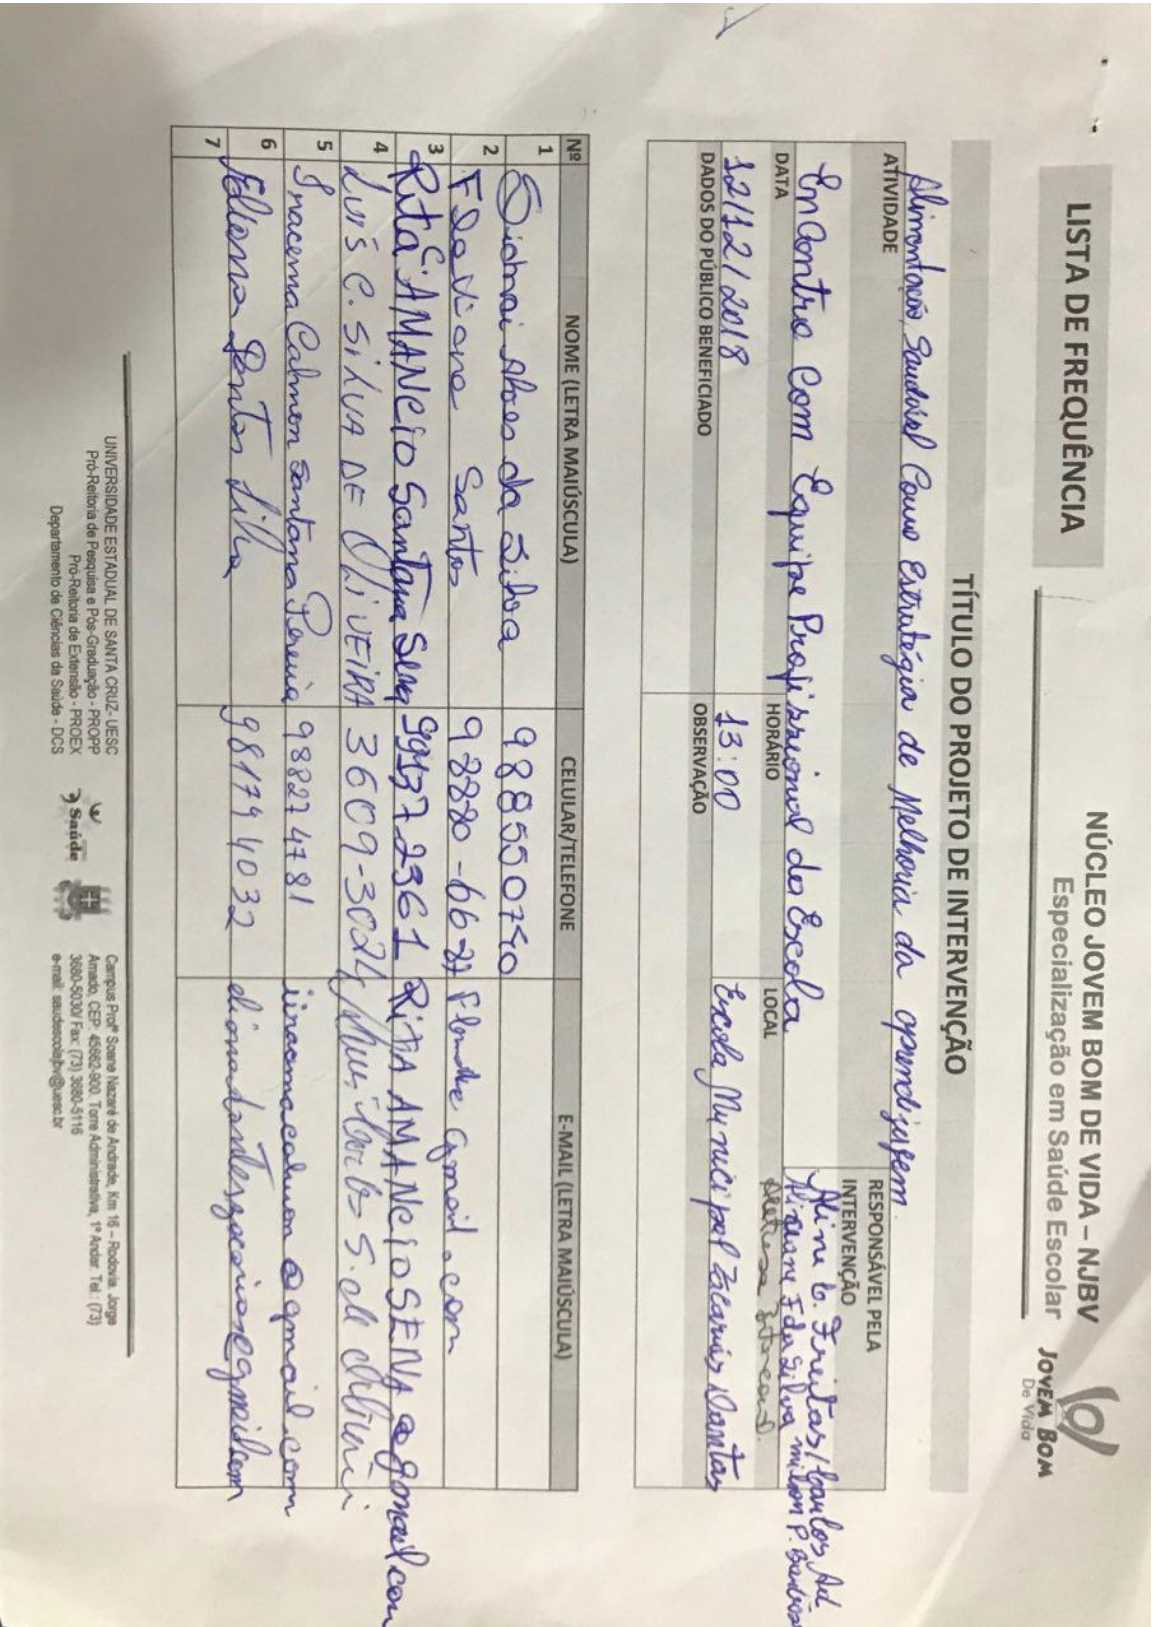 LISTA DE FREQUÊNCIA
NÚCLEO JOVEM BOM DE VIDA – NJBV
Especialização em Saúde Escolar
JOVEM BOM
De Vida
TÍTULO DO PROJETO DE INTERVENÇÃO
Alimentação Saudável Como Estratégia de Melhoria da aprendizagem
ATIVIDADE
Encontro Com Equipe Profissional da Escola
RESPONSÁVEL PELA
INTERVENÇÃO
Aline B. Freitas/Carlos Ad
F da Silva P. Barbosa
DATA
12/12/2018
HORÁRIO
13:00
LOCAL
Escola Municipal Zacarias Dantas
DADOS DO PÚBLICO BENEFICIADO
OBSERVAÇÃO
Nº NOME (LETRA MAIÚSCULA) CELULAR/TELEFONE E-MAIL (LETRA MAIÚSCULA)
1 Alves da Silva 988550740
2 Santos
3 Rita C. AMANCIO Santana 991372361 RITA AMANCIO SENA@gmail.com
4 Luís C. SILVA DE OLIVEIRA 3609-3024
5 Calmon Santana Pereira 988274781
6 981794032
7
UNIVERSIDADE ESTADUAL DE SANTA CRUZ- UESC
Pró-Reitoria de Pesquisa e Pós-Graduação - PROPP
Pró-Reitoria de Extensão - PROEX
Departamento de Ciências da Saúde - DCS
Saúde
Campus Profª Soane Nazaré de Andrade, Km 16 – Rodovia Jorge
Amado, CEP: 45662-900. Torre Administrativa, 1º Andar. Tel.: (73)
3680-5030/ Fax: (73) 3680-5116
e-mail: saudeescolajbv@uesc.br